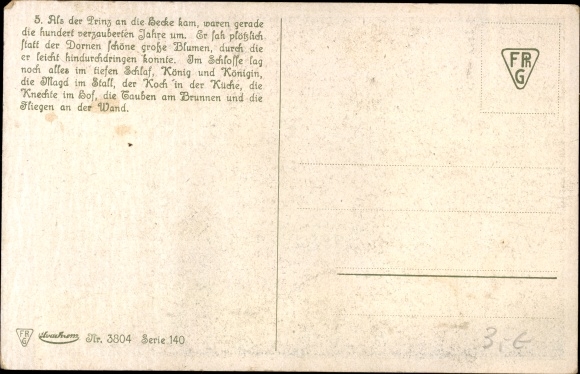 5. Als der Prinz an die Hecke kam, waren gerade
die hundert verzauberten Jahre um. Er sah plötzlich
statt der Dornen schöne große Blumen, durch die
er leicht hindurchdringen konnte. Im Schlosse lag
noch alles im tiefen Schlaf, König und Königin,
die Magd im Stall, der Koch in der Küche, die
Knechte im Hof, die Tauben am Brunnen und die
Fliegen an der Wand.
FPh
G
FPh
G
Nr. 3804 Serie 140
3,-€